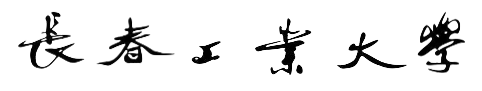 長春工業大學